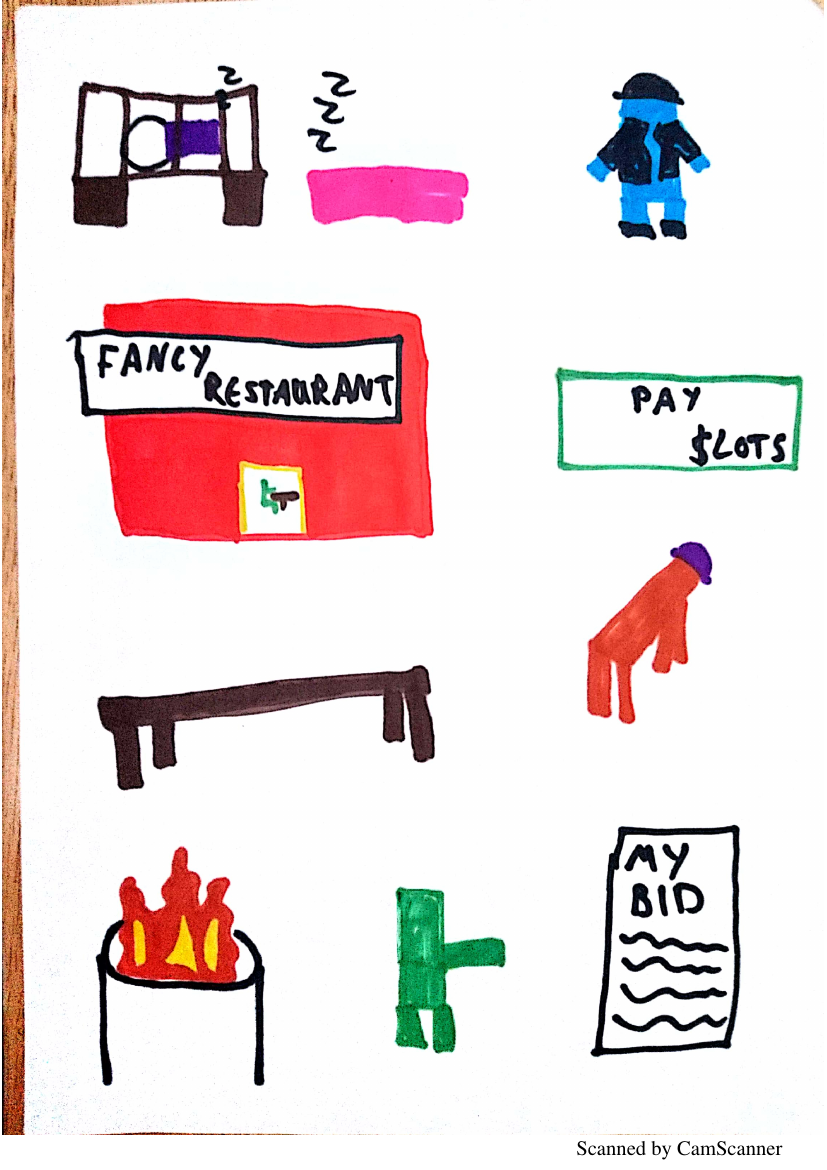 z
z
z
z
FANCY
RESTAURANT
PAY
$LOTS
MY
BID
Scanned by CamScanner